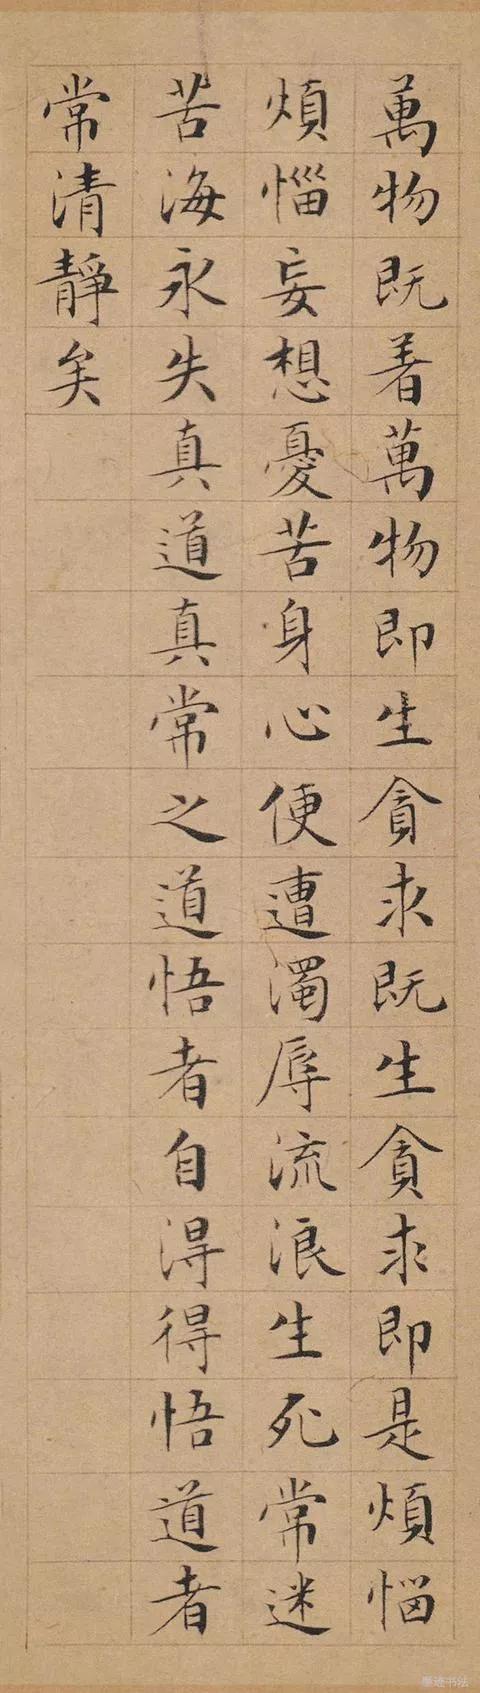 萬物既着萬物即生貪求既生貪求即是煩惱
煩惱妄想憂苦身心便遭濁辱流浪生死常迷
苦海永失真道真常之道悟者自得得悟道者
常清靜矣
墨迹书法